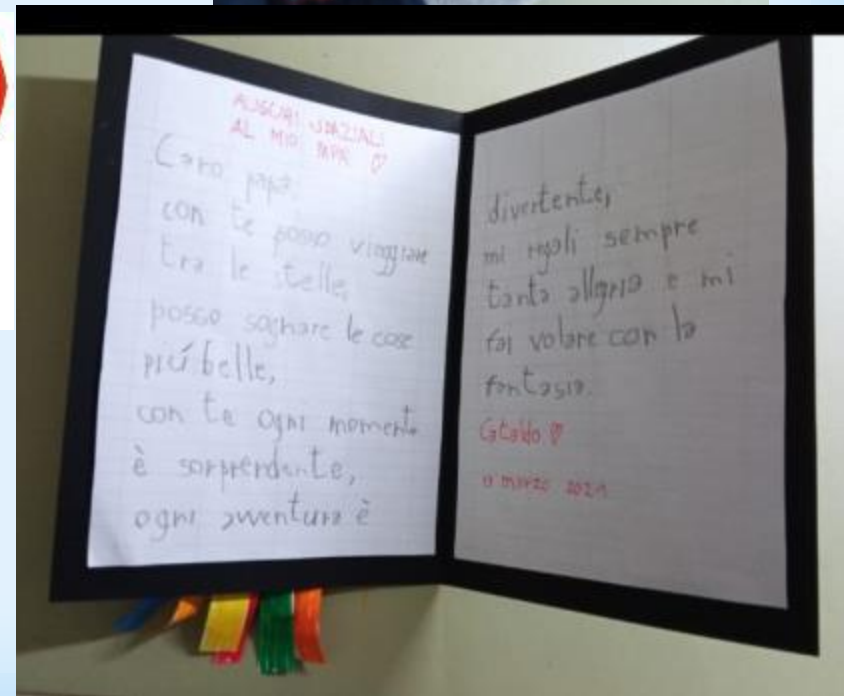 AUGURI SPAZIALI
AL MIO PAPÀ
Caro papà,
con te posso viaggiare
tra le stelle,
posso sognare le cose
più belle,
con te ogni momento
è sorprendente,
ogni avventura è
divertente,
mi regali sempre
tanta allegria e mi
fai volare con la
fantasia.
Cataldo
marzo 2021